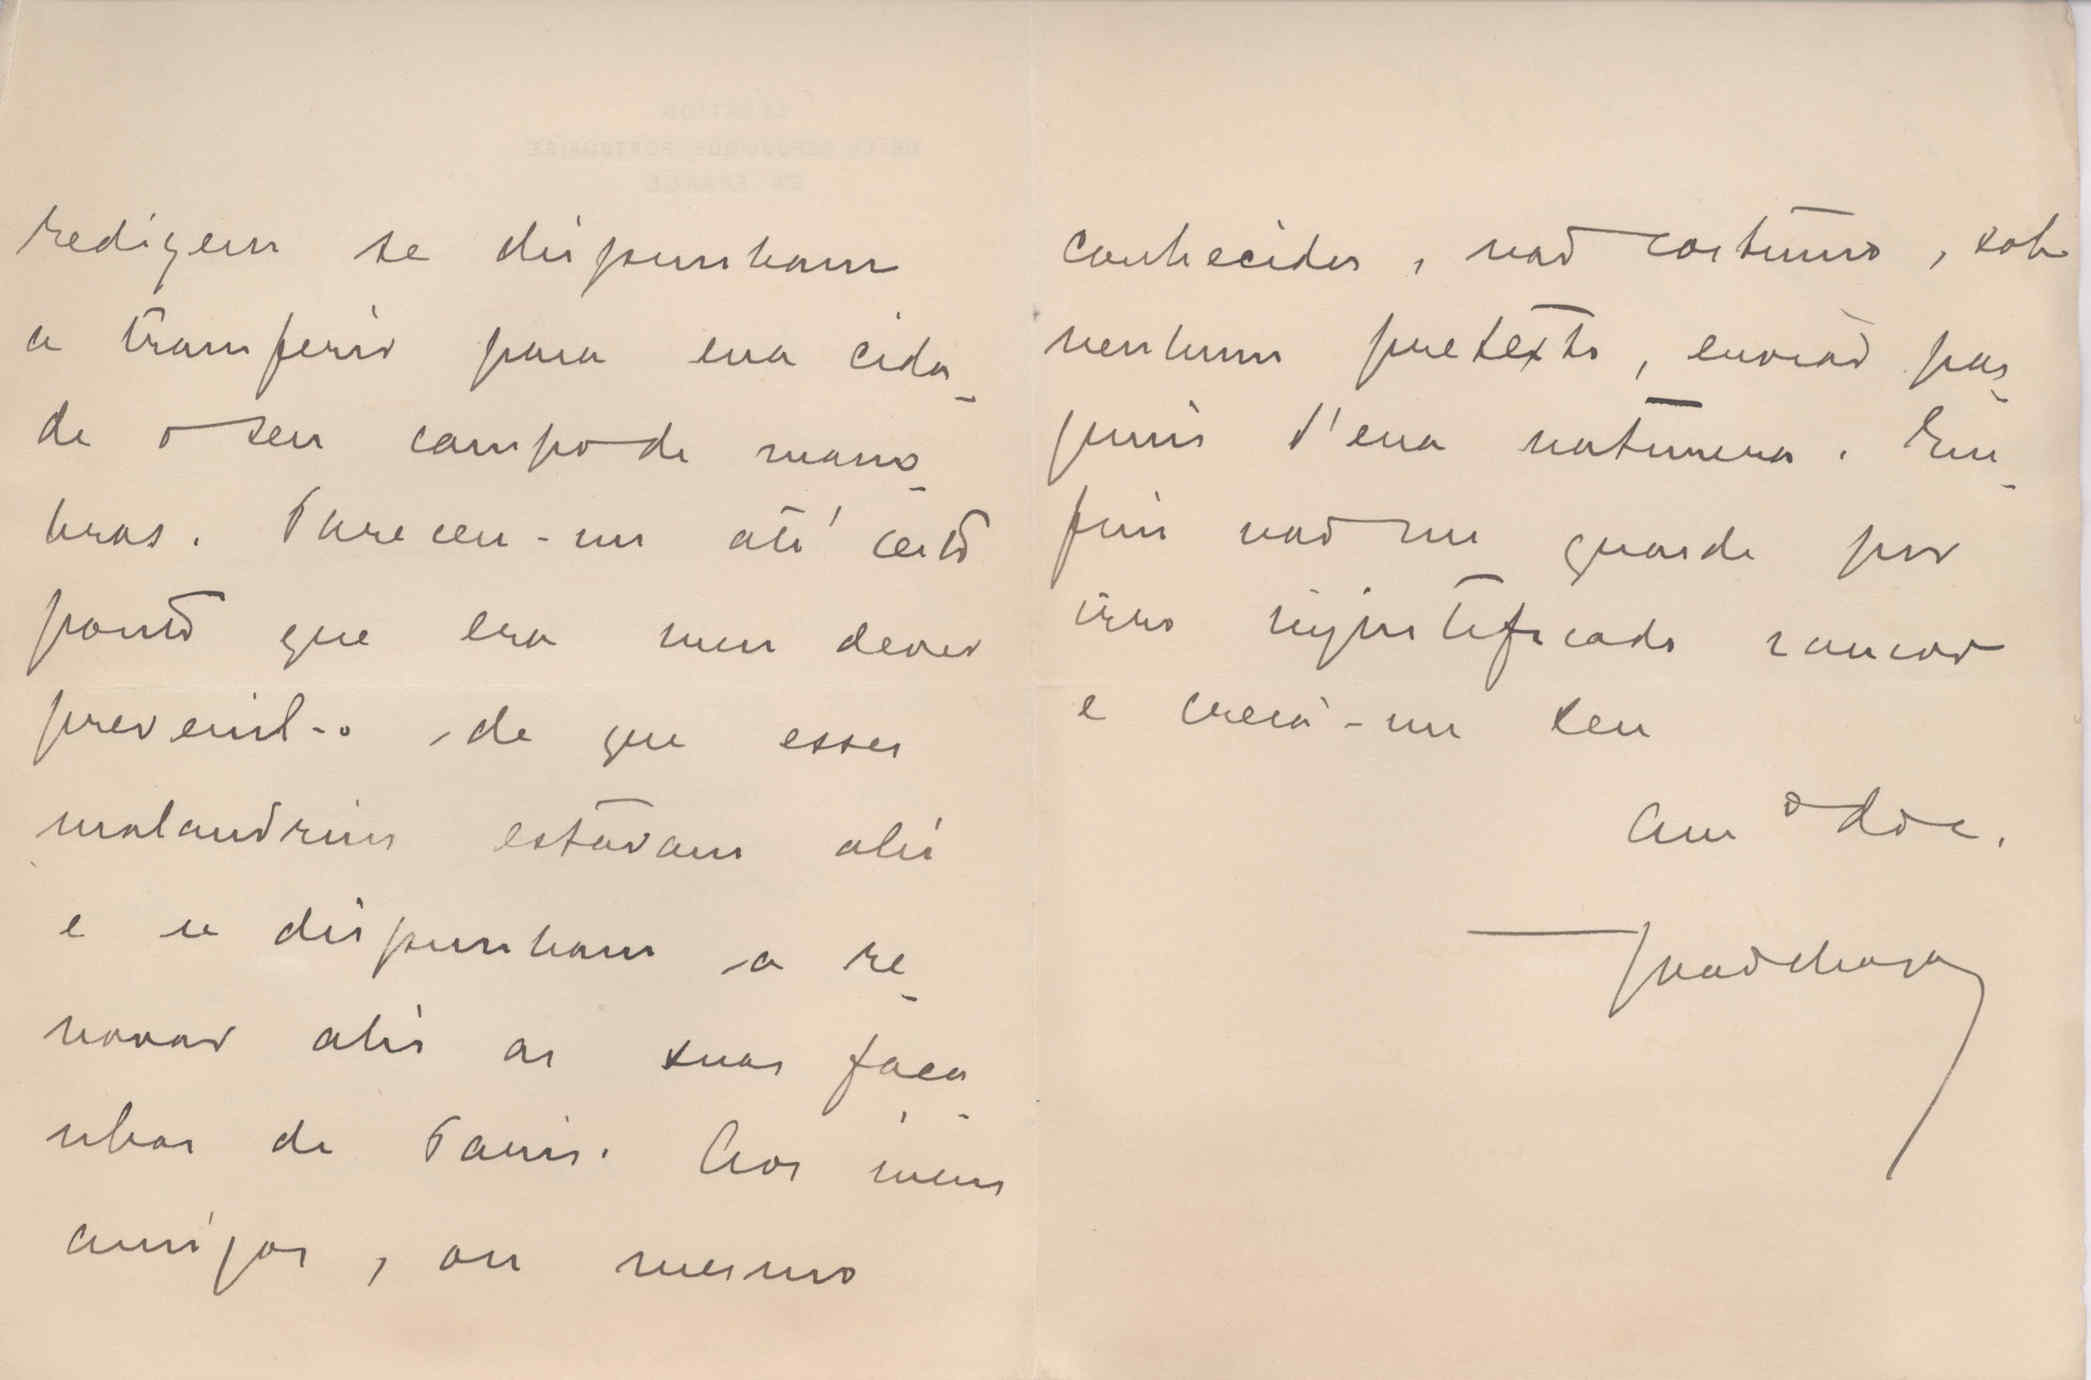 redigem se dispunham
a transferir para essa cida-
de o seu campo de mano-
bras. Pareceu-me até certo
ponto que era meu dever
prevenil-o de que esses
malandrins estavam ahi
e se dispunham a re-
novar ahi as suas faça-
nhas de Paris. Aos meus
amigos, ou mesmo
conhecidos, não costumo, sob
nenhum pretexto, enviar pas-
quins d'essa natureza. Em-
fim não me guarde por
isso injustificado rancor
e creia-me seu
Amº
João Chagas